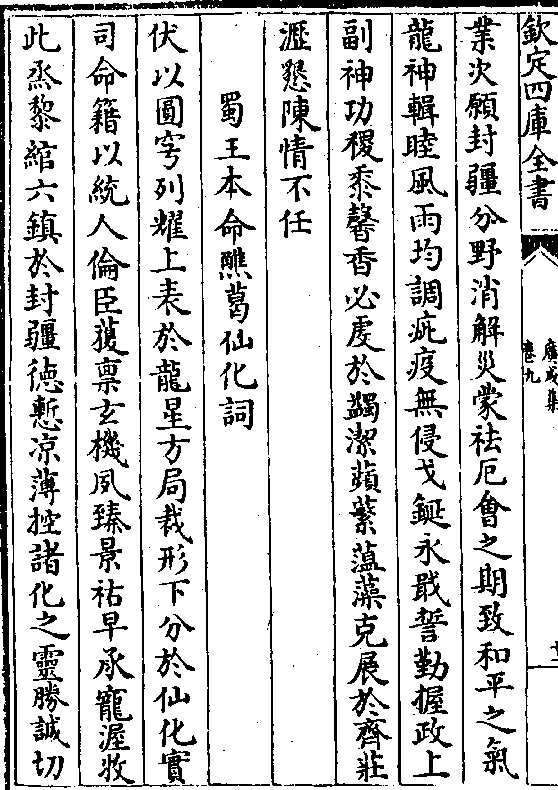 欽定四庫全書
廣成集
卷九
業次願封疆分野消解災蒙祛厄會之期致和平之氣
龍神輯睦風雨均調疵疫無侵戈鋋永戢誓勤握政上
副神功稷黍馨香必虔於蠲潔蘋蘩薀藻克展於齊莊
瀝懇陳情不任
蜀王本命醮葛仙化詞
伏以圓穹列耀上表於龍星方局裁形下分於仙化實
司命籍以統人倫臣荻禀玄機夙臻景祐早承寵渥牧
此烝黎綰六鎮於封疆德慙凉薄控諸化之靈勝誠切